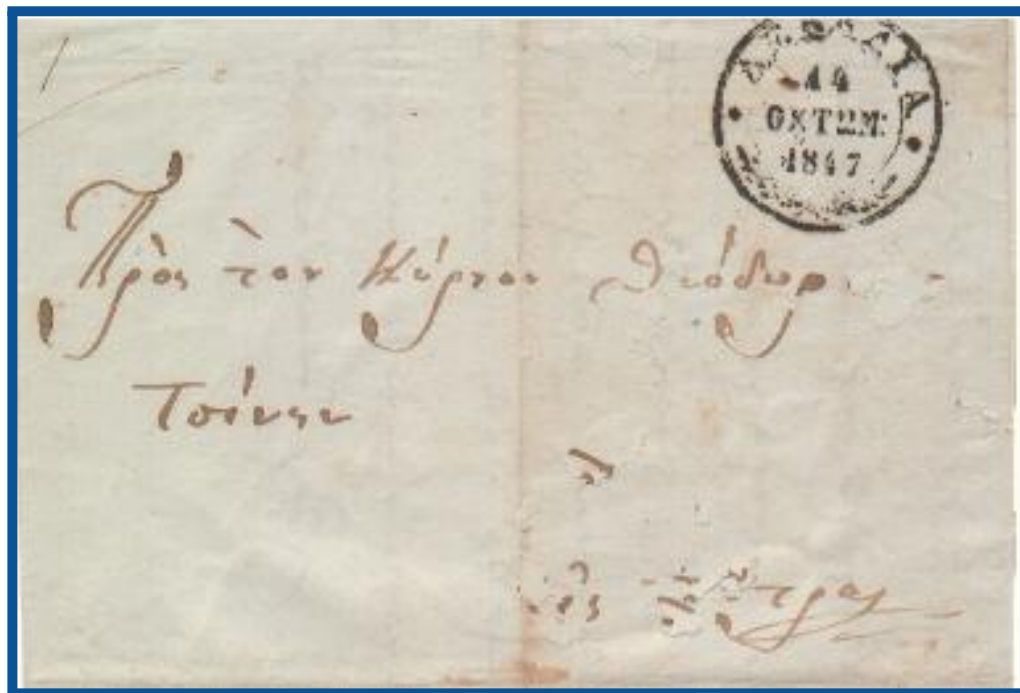 14
ΟΚΤΩΜ:
1847
Πρὸς τὸν Κύριον Θεόδωρ
Τσίνην
εἰς Πάτρας